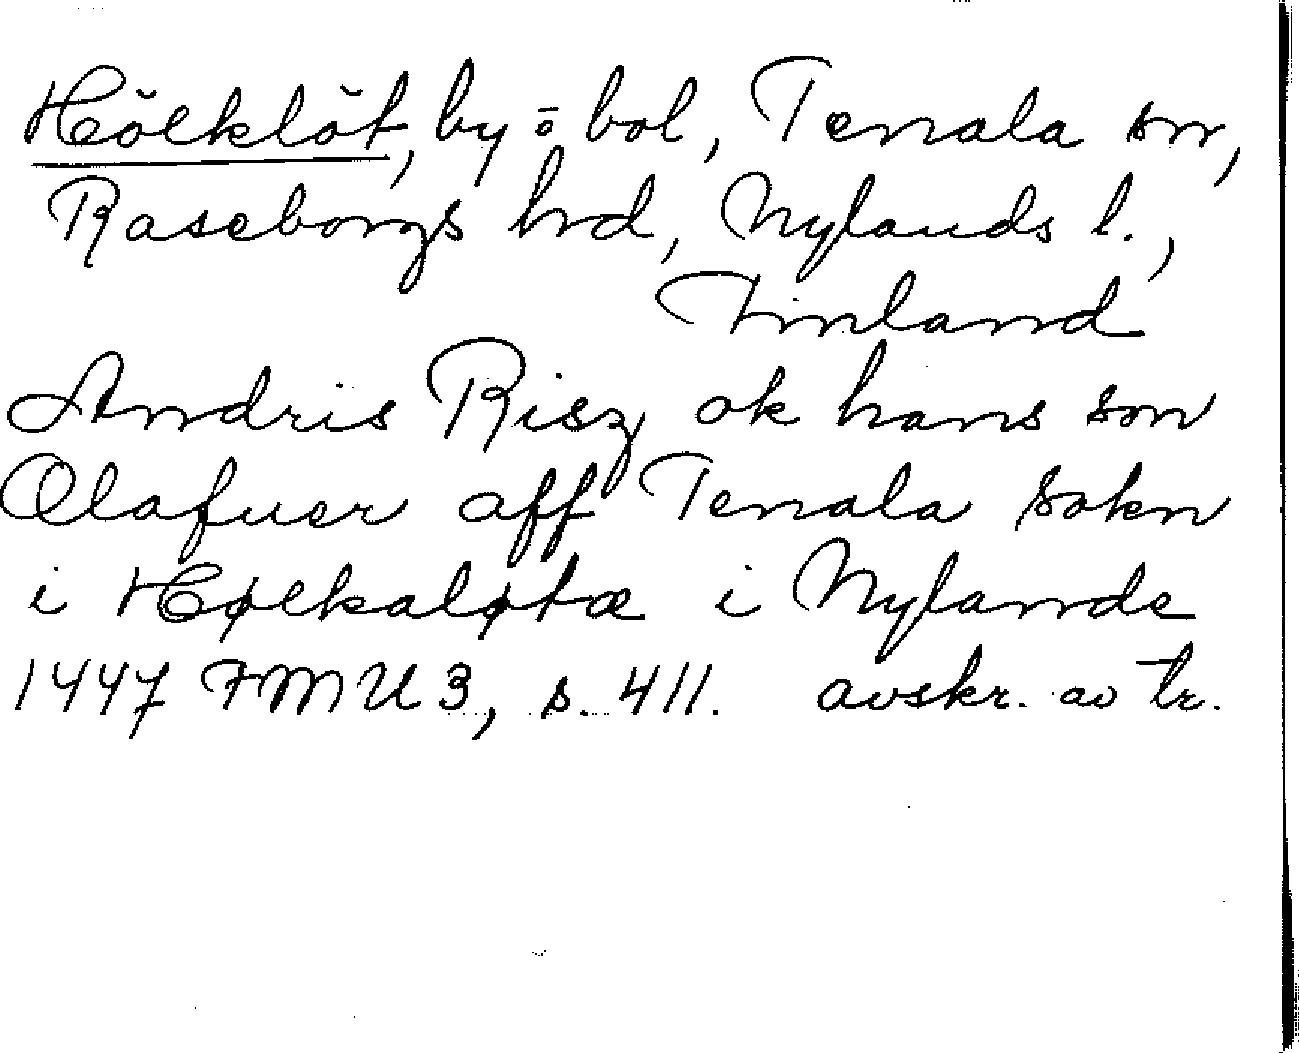 Hölklöt, by o bol, Tenala sn,
Raseborgs hd, Nylands l.,
Finland
Andris Risz ok hans son
Olafuer aff Tenala sokn
i Hølkaløtæ i Nylande
1447 FMU 3, s. 411. avskr. av tr.